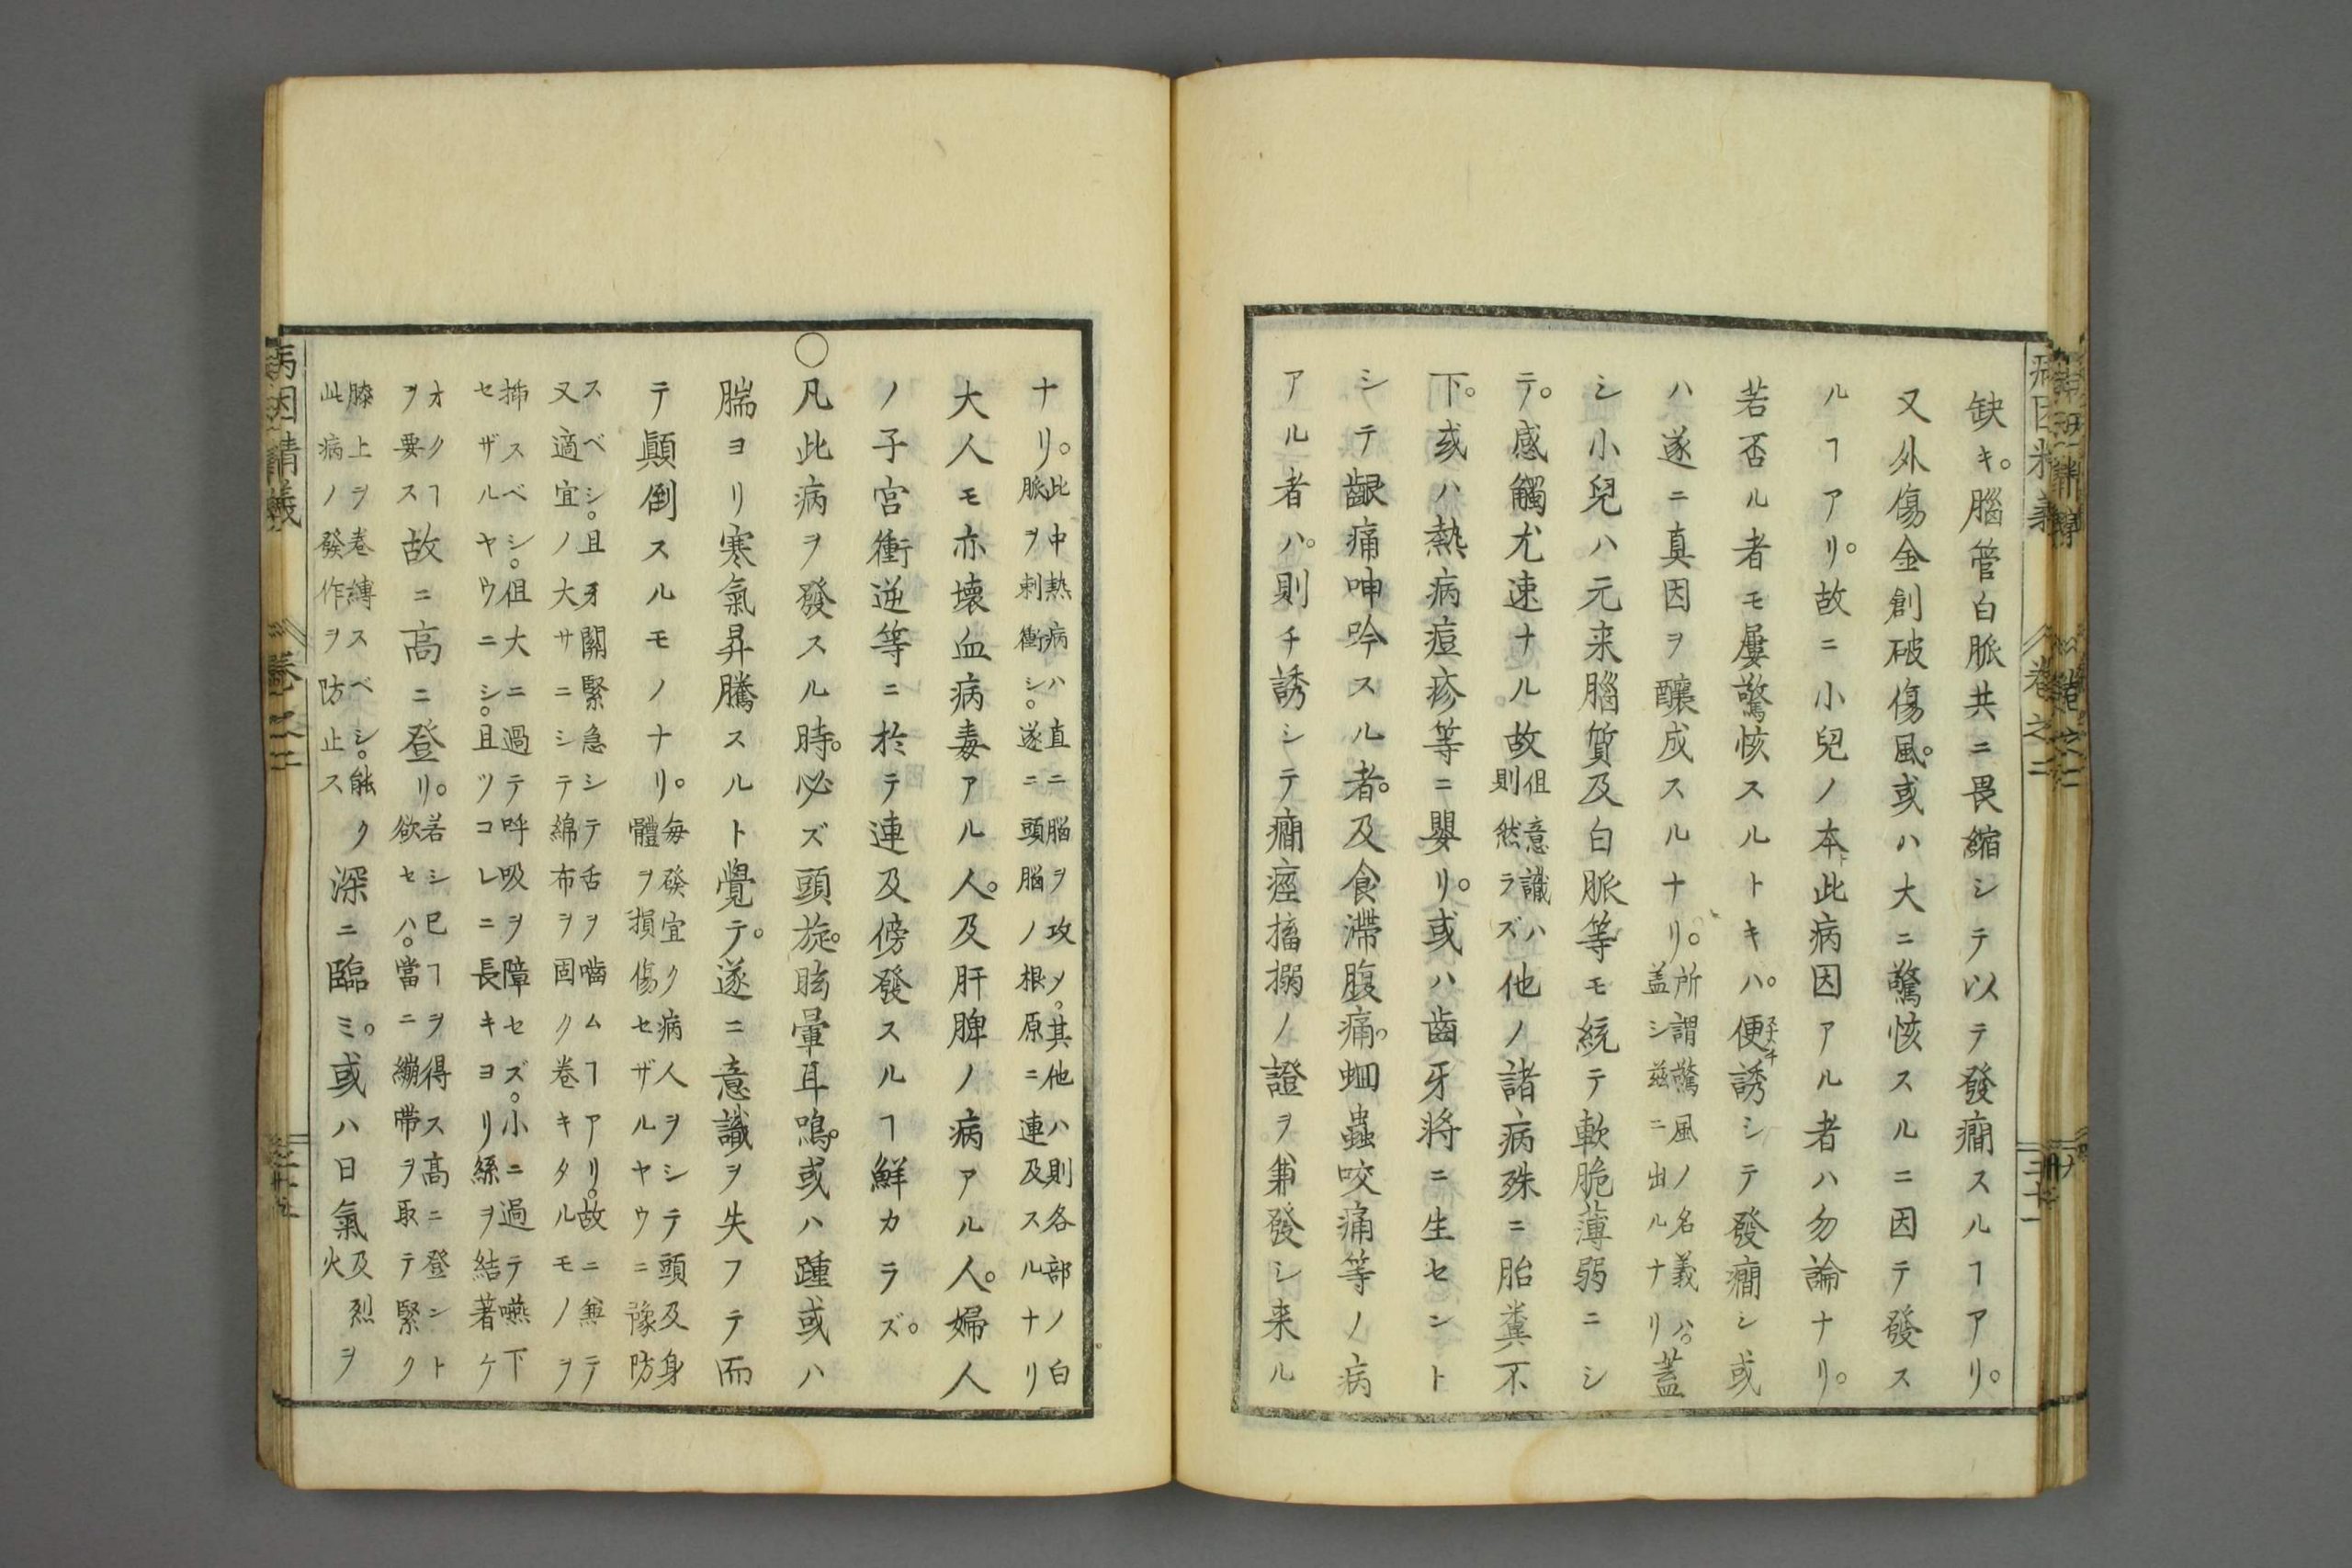 缺キ。腦管白脈共ニ畏縮シテ以テ發癎スルヿアリ。
又外傷金創破傷風。或ハ大ニ驚愾スルニ因テ發ス
ルヿアリ。故ニ小兒ノ本ト此病因アル者ハ勿論ナリ。
若否ル者モ屢驚愾スルトキハ。便誘シテ發癎シ或
ハ遂ニ真因ヲ釀成スルナリ。所謂驚風ノ名義ハ。盖シ茲ニ出ルナリ蓋
シ小兒ハ元来腦質及白脈等モ統テ軟脆薄弱ニシ
テ。感觸尤速ナル。故但意識ハ則然ラズ他ノ諸病殊ニ胎糞不
下。或ハ熱病痘疹等ニ嬰リ。或ハ齒牙将ニ生セント
シテ齦痛呻吟スル者。及食滞腹痛。蛔蟲咬痛等ノ病
アル者ハ。則チ誘シテ癎痙搐搦ノ證ヲ兼發シ来ル
ナリ。此中熱病ハ直ニ腦ヲ攻メ。其他ハ則各部ノ白脈ヲ刺衝シ。遂ニ頭腦ノ根原ニ連及スルナリ
大人モ亦壊血病毒アル人。及肝脾ノ病アル人。婦人
ノ子宮衝逆等ニ於テ連及傍發スルヿ鮮カラズ。
〇凡此病ヲ發スル時。必ズ頭旋。眩暈耳鳴。或ハ踵或ハ
腨ヨリ寒氣昇騰スルト覺テ。遂ニ意識ヲ失フテ而
テ顚倒スルモノナリ。毎發宜ク病人ヲシテ頭及身體ヲ損傷セザルヤウニ豫防
スベシ。且牙關緊急シテ舌ヲ嚙ムヿアリ。故ニ無テ又適宜ノ大サニシテ綿布ヲ固ク卷キタルモノヲ
挿スベシ。但大ニ過テ呼吸ヲ障セズ。小ニ過テ嚥下セザルヤウニシ。且ツコレニ長キヨリ絲ヲ結著ケ
オクヿヲ要ス故ニ高ニ登リ。若シ已ヿヲ得ス高ニ登ント欲セハ。當ニ繃帯ヲ取テ緊ク
膝上ヲ卷縛スベシ。能ク此病ノ發作ヲ防止ス深ニ臨ミ。或ハ日氣及烈火ヲ
病因精義
卷之二